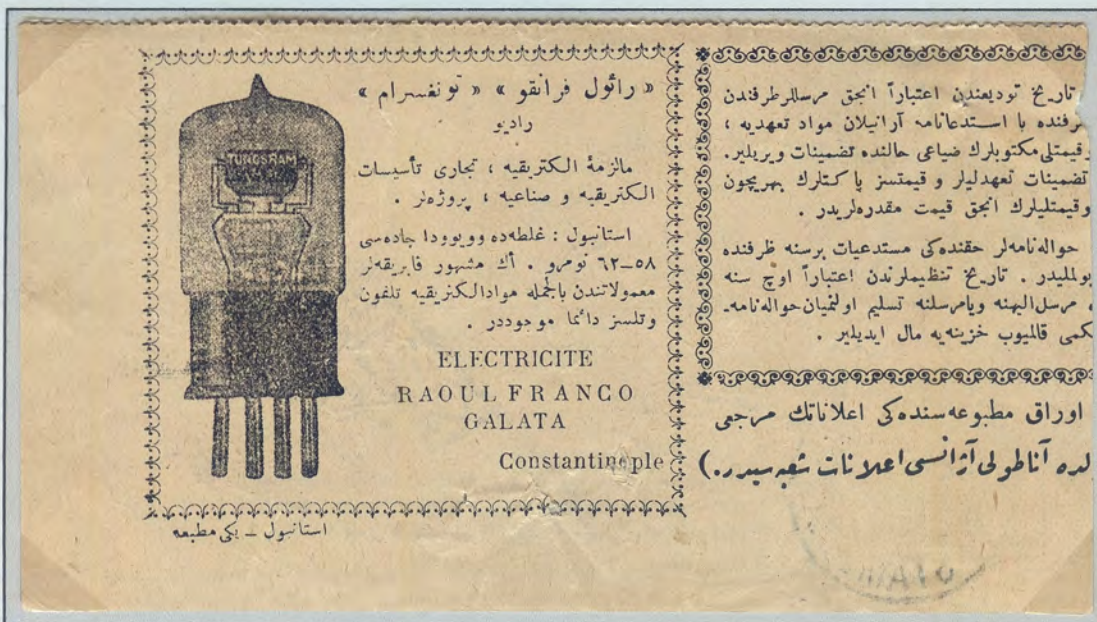 « رائول فرانقو » « تونغسرام »
رادیو
مالزمهٔ الکتریقیه ، تجاری تأسیسات
الکتریقیه و صناعیه ، پروژه‌لر .
استانبول : غلطه‌ده وویوودا جاده‌سی
٥٨–٦٢ نومرو . اك مشهور فابریقه‌لر
معمولاتندن بالجمله موادالکتریقیه تلفون
وتلسز دائما موجوددر .
ELECTRICITE
RAOUL FRANCO
GALATA
Constantinople
TUNGSRAM
استانبول – یکی مطبعه
تاریخ تودیعندن اعتباراً انجق مرسللرطرفندن
ظرفنده با استدعانامه آرانیلان مواد تعهدیه ،
وقیمتلی مکتوبلرك ضیاعی حالنده تضمینات ویریلیر.
تضمینات تعهدلیلر و قیمتسز پاکتلرك بهریچون
وقیمتلیلرك انجق قیمت مقدره‌لریدر .
حواله‌نامه‌لر حقنده‌کی مستدعیات برسنه ظرفنده
تاریخ تنظیملرندن اعتباراً اوچ سنه
مرسل‌الیهنه ویامرسلنه تسلیم اولنمیان حواله‌نامه‌ـ
قالمیوب خزینه‌یه مال ایدیلیر .
اوراق مطبوعه‌سنده‌کی اعلاناتك مرجعی
آناطولی آژانسی اعلانات شعبه‌سیدر.)